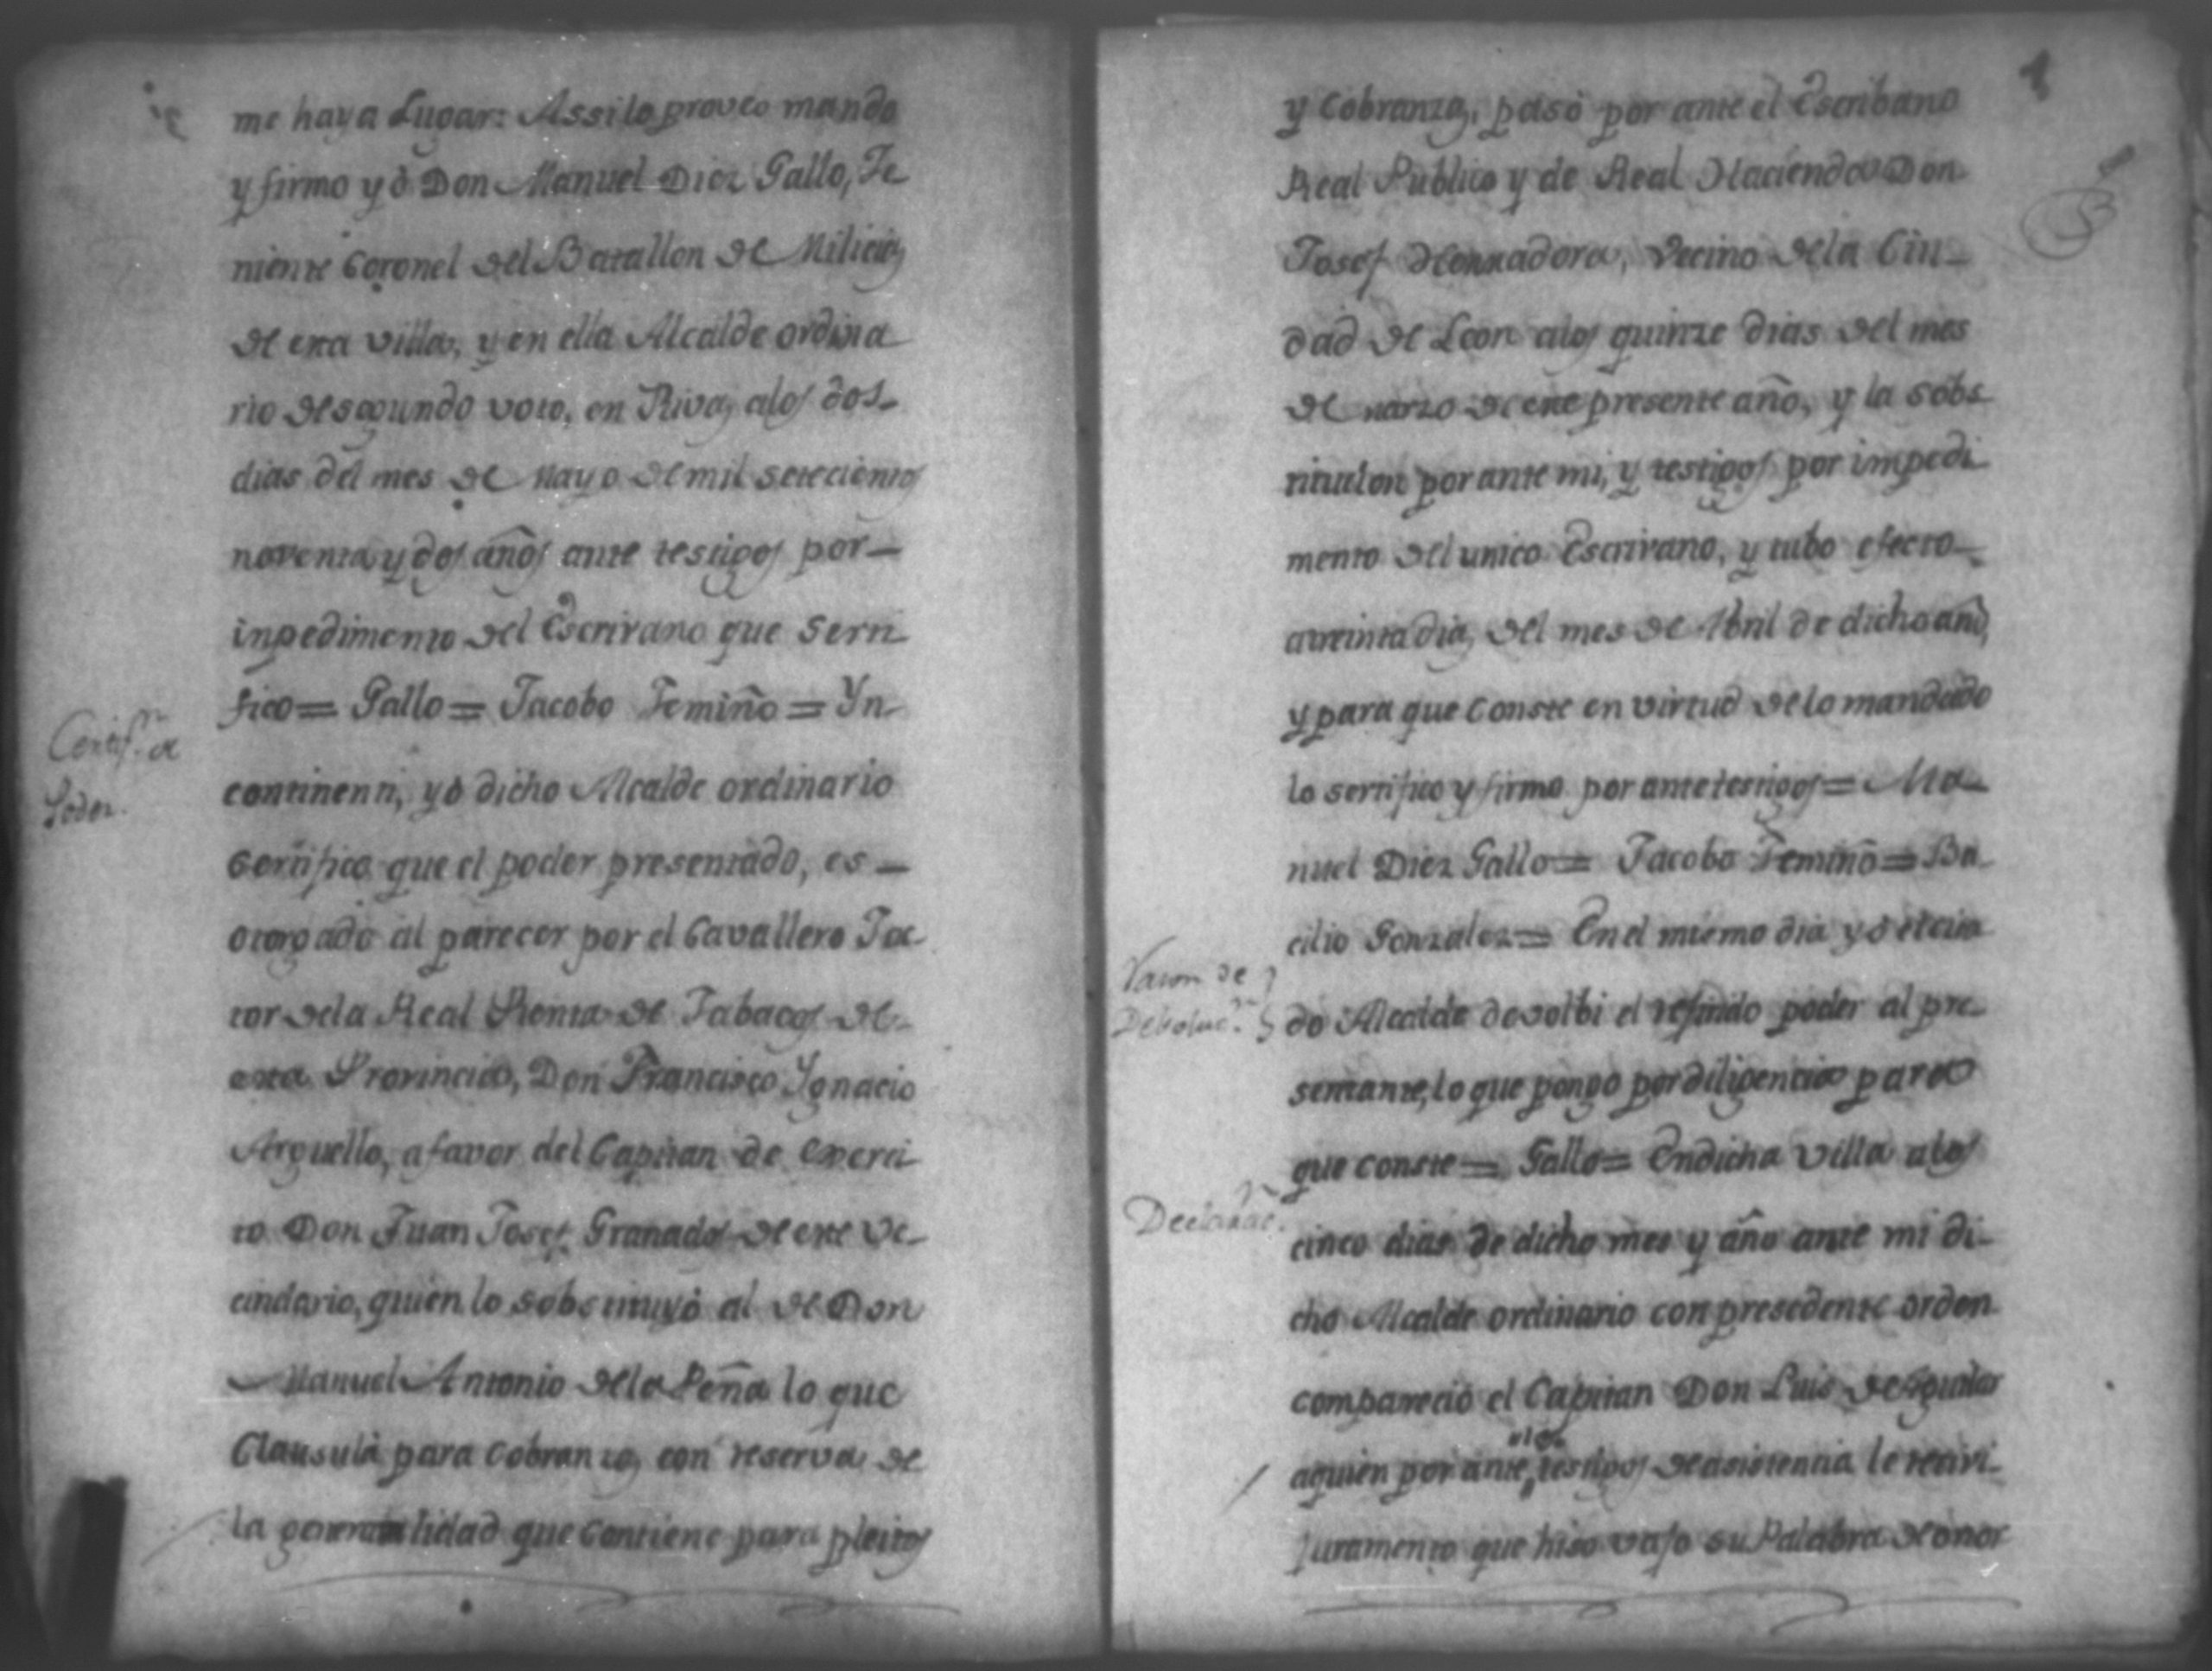 me haya Lugar: Assi lo proveo mando
y firmo yo Don Manuel Diez Gallo, Te
niente Coronel del Batallon de Milicias
de esta villa, y en ella Alcalde ordina
rio de segundo voto, en Rivas alos dos
dias del mes de Mayo de mil setecientos
noventa y dos años ante testigos por
inpedimento del Escrivano que serti
fico = Gallo = Jacobo Temiño = Yn
Certif.n de
Poder.
continenti, yo dicho Alcalde ordinario
Certifico que el poder presentado, es
otorgado al parecer por el Cavallero Fac
tor dela Real Renta de Tabacos de
esta Provincia, Don Francisco Ygnacio
Arguello, a favor del Capitan de Exerci
to Don Juan Josef Granados de este Ve
cindario, quien lo sobstituyó al de Don
Manuel Antonio dela Peña lo que
Clausula para Cobranzas con reserva de
la generalidad que contiene para pleitos
y Cobranzas, pasó por ante el Escribano
Real Publico y de Real Hacienda Don
Josef Hontadora, vecino dela Ciu
dad de Leon alos quinze dias del mes
de marzo de este presente año, y la sobs
titucion por ante mi, y testigos por impedi
mento del unico Escrivano, y tubo efecto
a treinta dias del mes de Abril de dicho año,
y para que conste en virtud de lo mandado
lo sertifico y firmo por ante testigos = Ma
nuel Diez Gallo = Jacobo Temiño = Ba
cilio Gonzalez = En el mismo dia yo el cita
Razon de
Deboluc.n
do Alcalde devolbi el referido poder al pre
sentante, lo que pongo por diligencia para
que conste = Gallo = En dicha villa alos
Declarac.n
cinco dias de dicho mes y año ante mi di
cho Alcalde ordinario con presedente orden
comparecio el Capitan Don Luis de Aguilar
aquien por ante los testigos de asistencia le recivi
juramento que hiso vajo su Palabra de onor